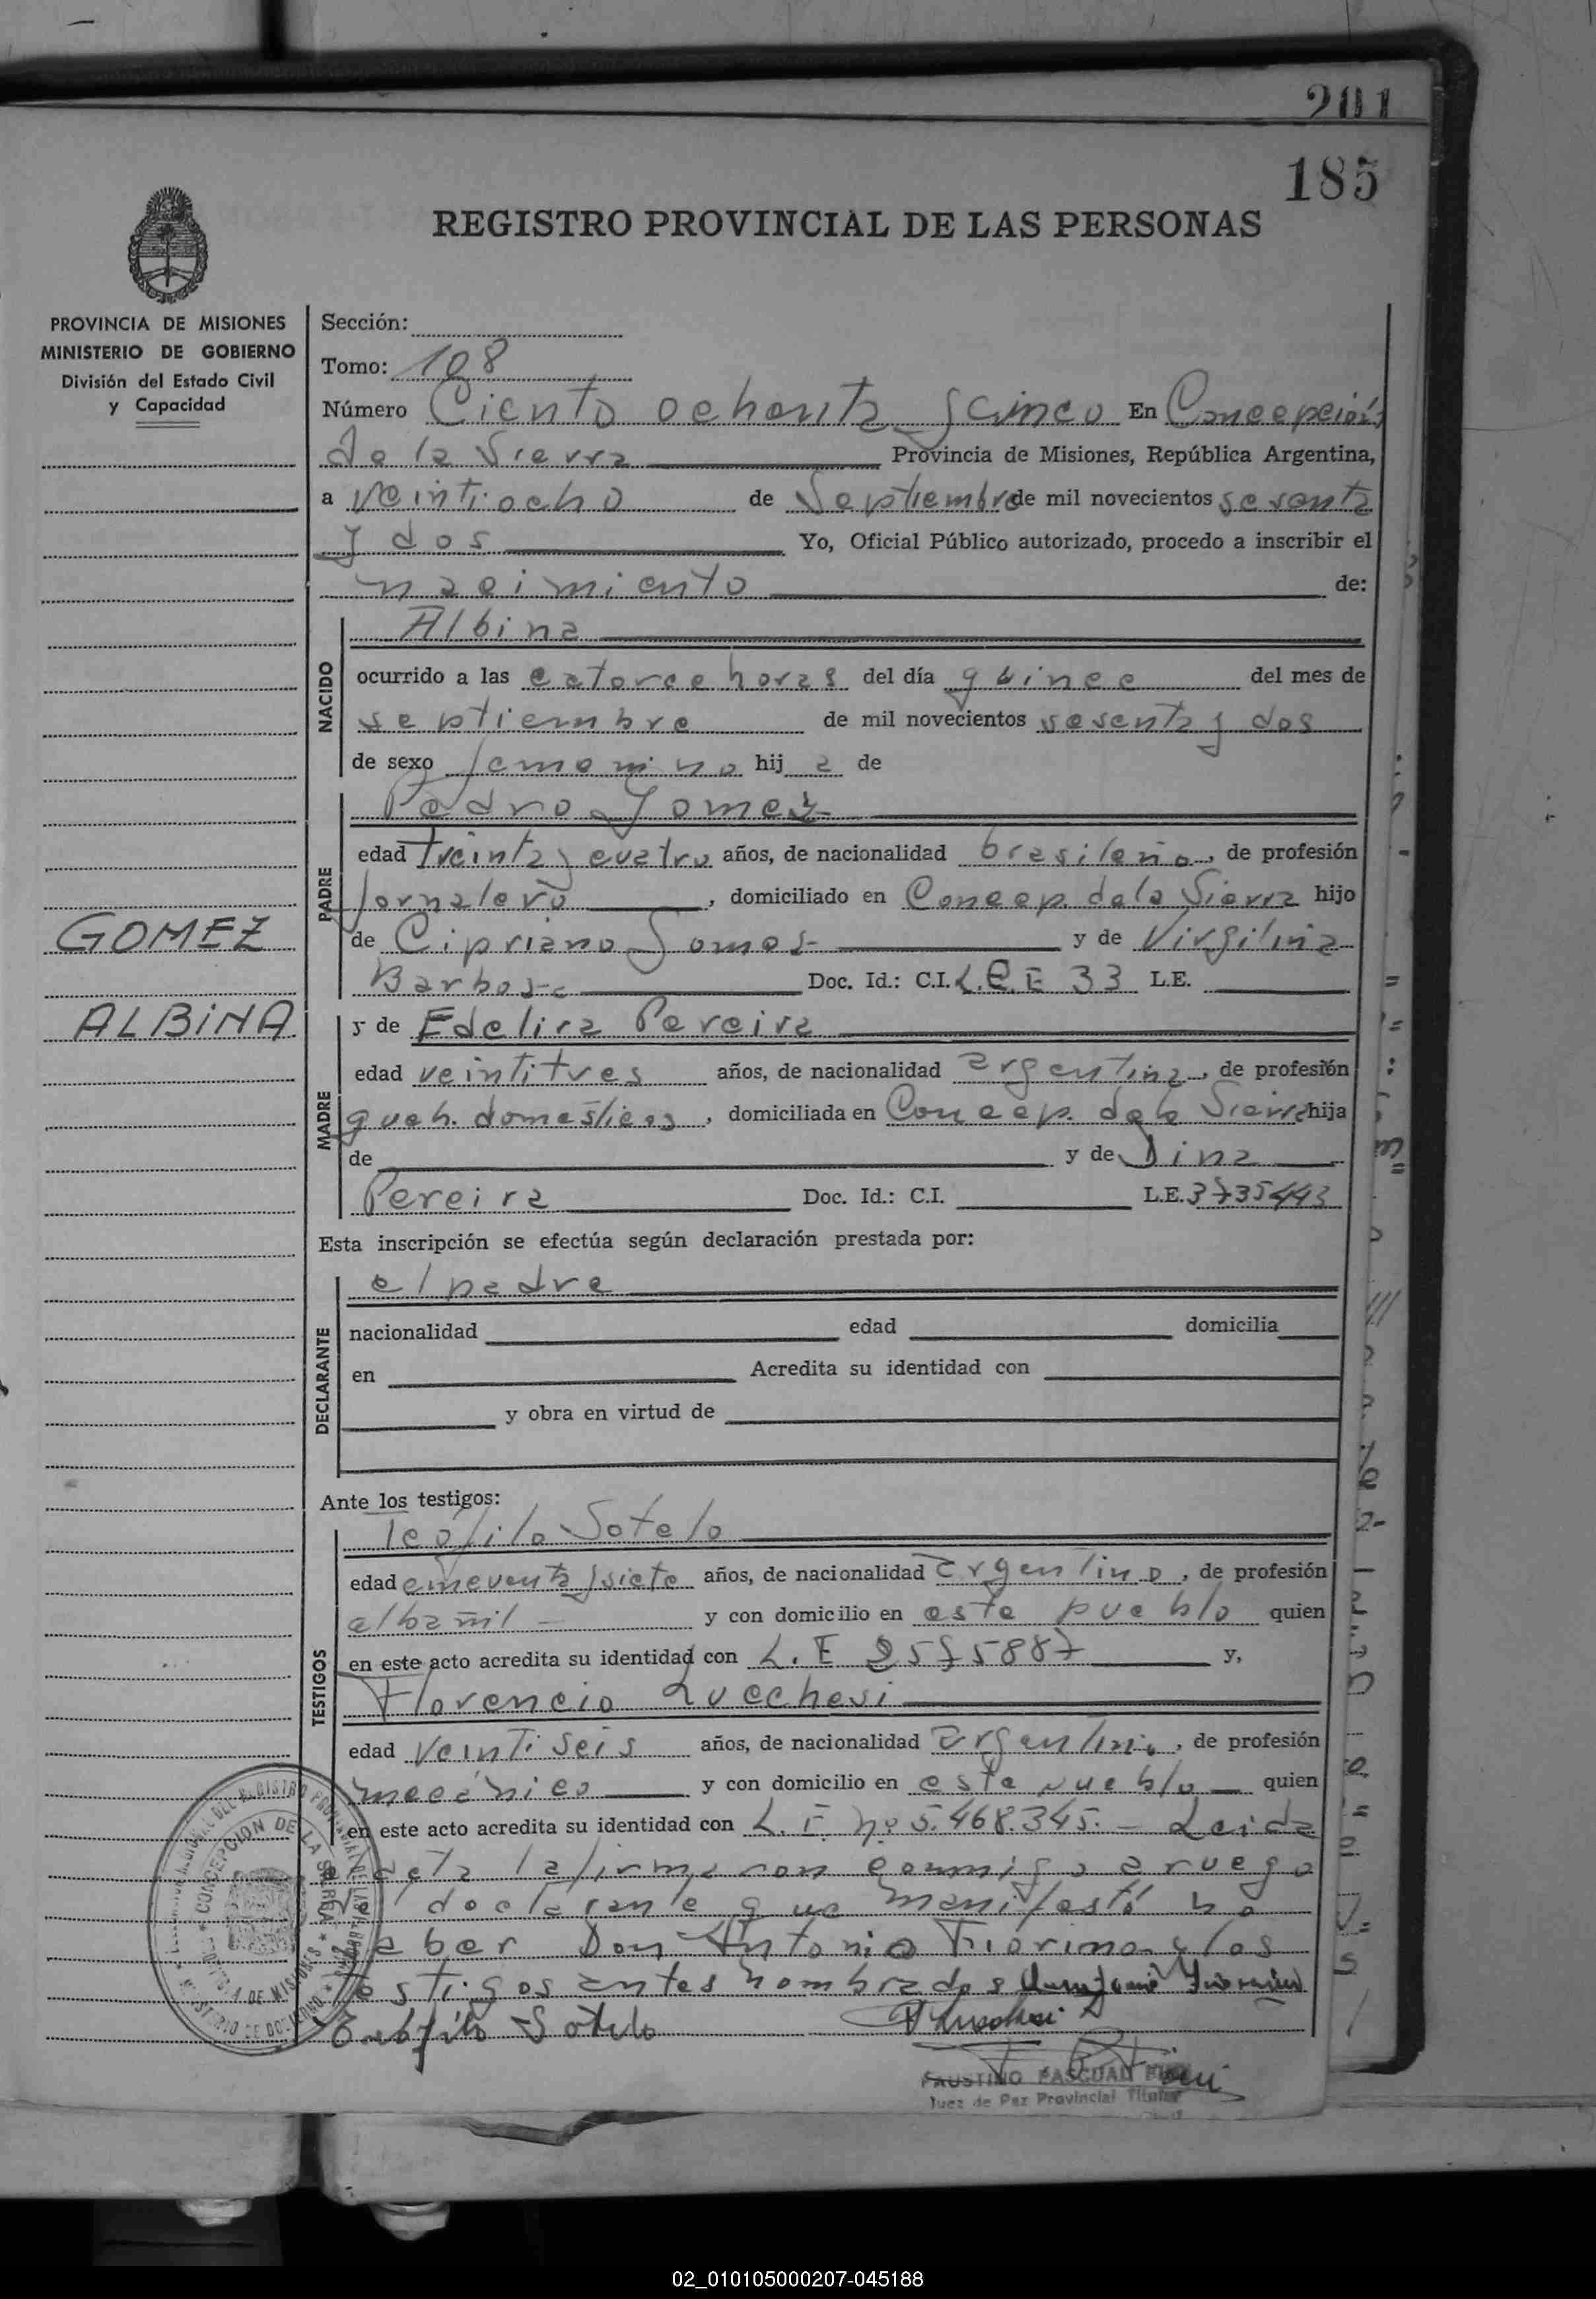 201
185
REGISTRO PROVINCIAL DE LAS PERSONAS
PROVINCIA DE MISIONES
MINISTERIO DE GOBIERNO
División del Estado Civil
y Capacidad
GOMEZ
ALBINA
Sección:
Tomo: 108
Número Ciento ochenta y cinco En Concepción
de la Sierra Provincia de Misiones, República Argentina,
a veintiocho de Septiembre de mil novecientos sesenta
y dos Yo, Oficial Público autorizado, procedo a inscribir el
nacimiento de:
NACIDO
Albina
ocurrido a las catorce horas del día quince del mes de
septiembre de mil novecientos sesenta y dos
de sexo femenino hij a de
PADRE
Pedro Gomez
edad treinta y cuatro años, de nacionalidad brasileño, de profesión
Jornalero, domiciliado en Concep. de la Sierra hijo
de Cipriano Gomes y de Virgilina
Barbosa Doc. Id.: C.I. 33 L.E.
MADRE
y de Edelira Pereira
edad veintitres años, de nacionalidad argentina, de profesión
queh. domesticos, domiciliada en Concep. de la Sierra hija
de y de Dina
Pereira Doc. Id.: C.I. L.E. 3735443
Esta inscripción se efectúa según declaración prestada por:
DECLARANTE
el padre
nacionalidad edad domicilia
en Acredita su identidad con
y obra en virtud de
Ante los testigos:
TESTIGOS
Teófilo Sotelo
edad cincuenta y siete años, de nacionalidad argentino, de profesión
albañil y con domicilio en este pueblo quien
en este acto acredita su identidad con L. E 2575887 y,
Florencio Lucchesi
edad veintiseis años, de nacionalidad argentino, de profesión
mecánico y con domicilio en este pueblo quien
en este acto acredita su identidad con L. E. nº 5.468.345. - Leida
acta la firman conmigo a ruego
del declarante que manifestó no
saber Don Antonio Fiorino y los
testigos antes nombrados
Teófilo Sotelo
FAUSTINO PASCUAL
Juez de Paz Provincial Titular
CONCEPCION DE LA SIERRA
02_010105000207-045188